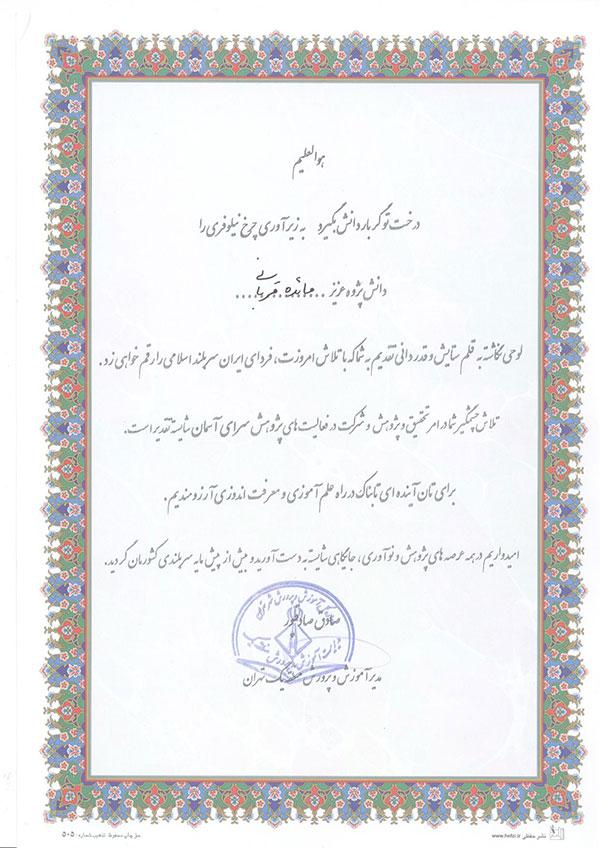 هوالعلیم
درخت تو گر بار دانش بگیرد به زیر آوری چرخ نیلوفری را
دانش پژوه عزیز ... مائده قربانی ...
لوحی نگاشته به قلم ستایش و قدردانی تقدیم به شما که با تلاش امروزت، فردای ایران سربلند اسلامی را رقم خواهی زد.
تلاش چشمگیر شما در امر تحقیق و پژوهش و شرکت در فعالیت های پژوهش سرای آسمان شایسته تقدیر است.
برای تان آینده ای تابناک در راه علم آموزی و معرفت اندوزی آرزومندیم.
امیدواریم در همه عرصه های پژوهش و نوآوری، جایگاهی شایسته به دست آورید و بیش از پیش مایه سربلندی کشورمان گردید.
صادق صادقپور
مدیر آموزش و پرورش منطقه یک تهران
حق چاپ محفوظ تذهیب شماره: ۵۰۵
www.hefzi.ir نشر حفظی